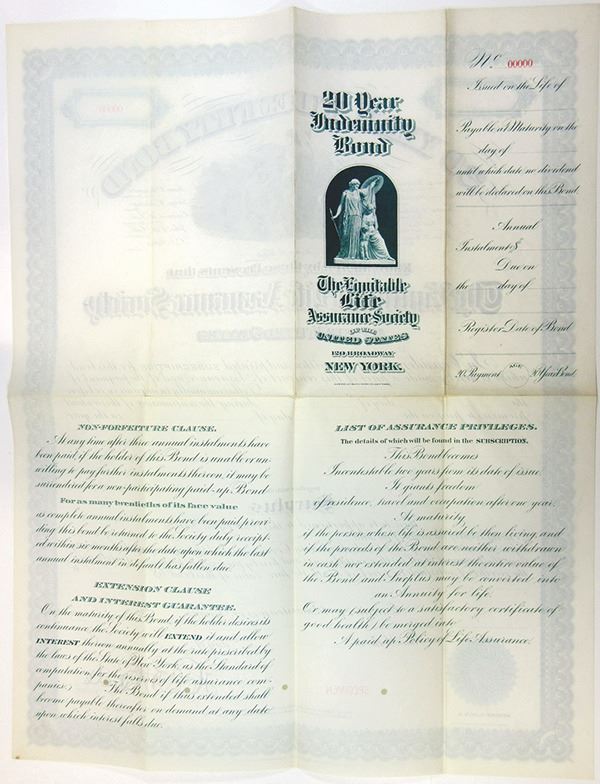 No 00000
Issued on the Life of
Payable at Maturity on the
day of
until which date no dividend
will be declared on this Bond.
Annual
Instalment $
Due on
the day of
Register Date of Bond
20 Payment 20 Year Bond
20 Year
Indemnity
Bond
The Equitable
Life
Assurance Society
OF THE
UNITED STATES
120, BROADWAY
NEW YORK.
NON-FORFEITURE CLAUSE.
At any time after three annual instalments have
been paid if the holder of this Bond is unable or un-
willing to pay further instalments thereon, it may be
surrendered for a non-participating paid-up Bond
For as many twentieths of its face value
as complete annual instalments have been paid provi-
ding this bond be returned to the Society duly receipt-
ed within six months after the date upon which the last
annual instalment in default has fallen due.
EXTENSION CLAUSE
AND INTEREST GUARANTEE.
On the maturity of this Bond if the holder desires its
continuance the Society will EXTEND it and allow
INTEREST thereon annually at the rate prescribed by
the laws of the State of New York, as the Standard of
computation for the reserves of life assurance com-
panies. The Bond if thus extended shall
become payable thereafter on demand at any date
upon which interest falls due.
LIST OF ASSURANCE PRIVILEGES.
The details of which will be found in the SUBSCRIPTION.
This Bond becomes
Incontestable two years from its date of issue.
It grants freedom
of residence, travel and occupation after one year.
At maturity
of the person whose life is assured be then living and
if the proceeds of the Bond are neither withdrawn
in cash nor extended at interest the entire value of
the Bond and Surplus may be converted into
an Annuity for life.
Or may (subject to a satisfactory certificate of
good health) be merged into
A paid up Policy of Life Assurance.
SPECIMEN